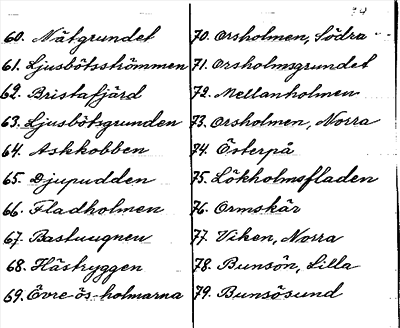 60. Nätgrundet
61. Ljusbötsströmmen
62. Bristafjärd
63. Ljusbötsgrunden
64. Askkobben
65. Djupudden
66. Fladholmen
67. Bastuugnen
68. Hästryggen
69. Övre ös-holmarna
70. Orsholmen, Södra
71. Orsholmsgrundet
72. Mellanholmen
73. Orsholmen, Norra
74. Österpå
75. Lökholmsfladen
76. Ormskär
77. Viken, Norra
78. Bunsön, Lilla
79. Bunsösund